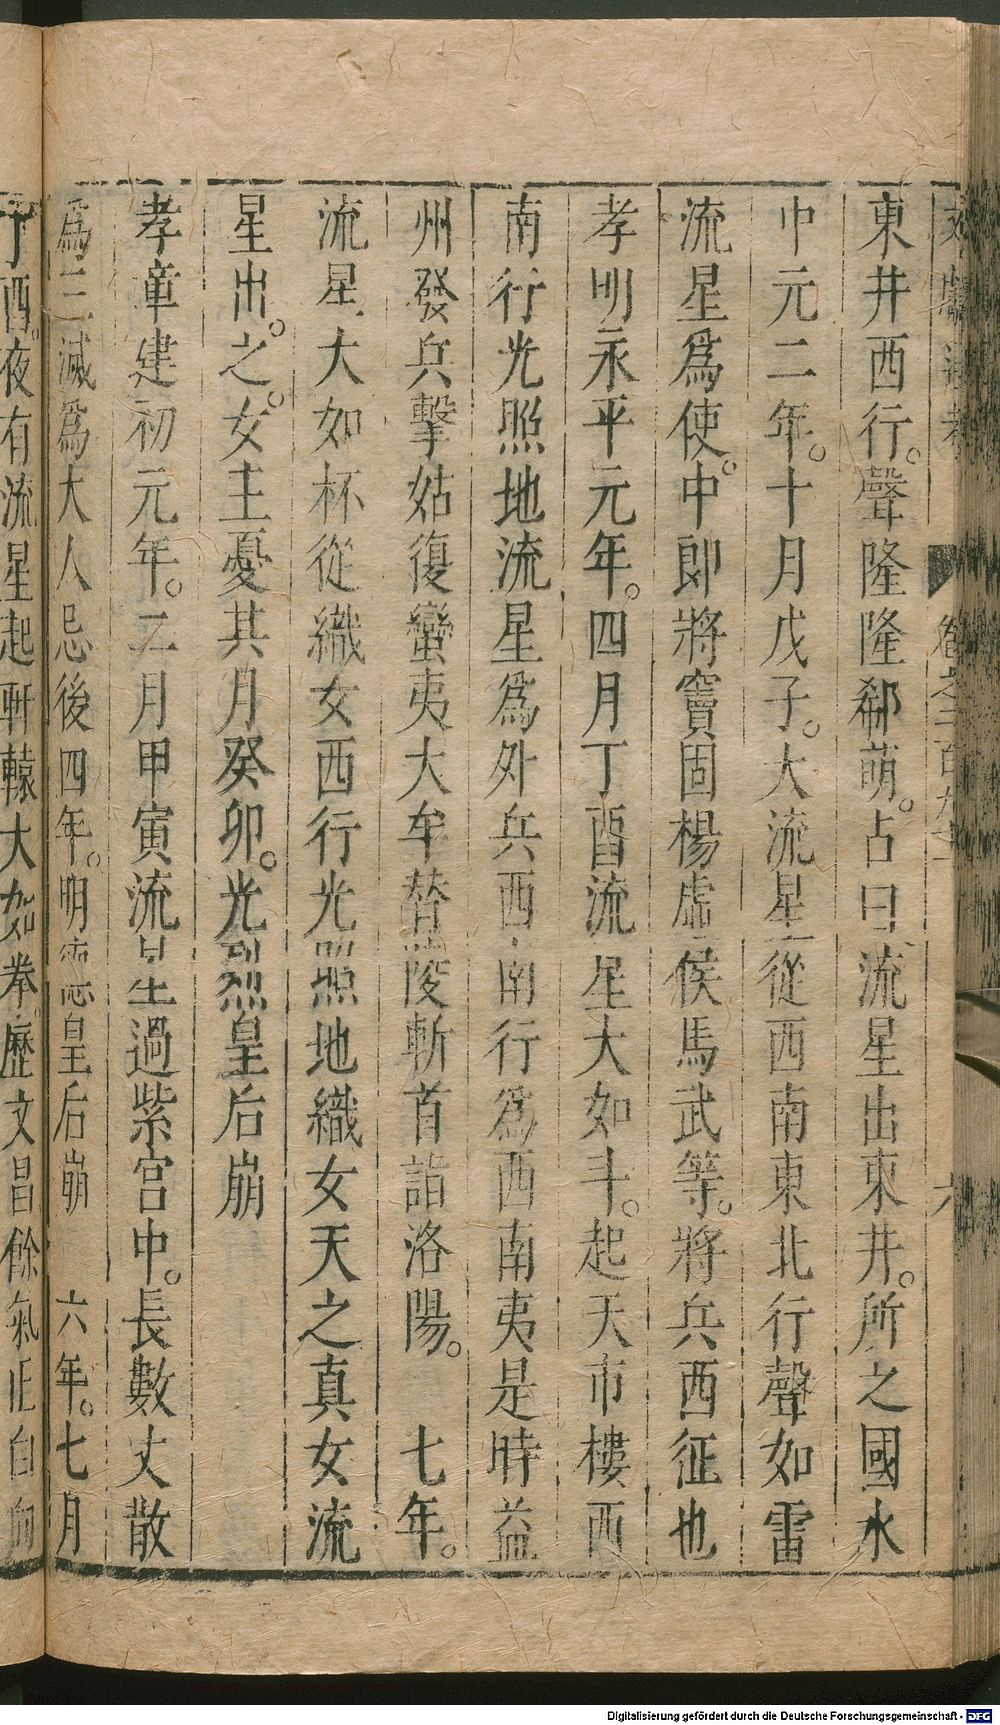 東井西行。聲隆隆郗萌。占曰流星出東井。所之國水
中元二年。十月戊子。大流星從西南東北行聲如雷
流星爲使。中郎將竇固楊虛侯馬武等。將兵西征也
孝明永平元年。四月丁酉流星大如斗。起天市樓西
南行光照地流星爲外兵西南行爲西南夷是時益
州發兵擊姑復蠻夷大牟替陵斬首詣洛陽。 七年。
流星大如杯從織女西行光照地織女天之真女流
星出。之。女主憂其月癸卯。光烈皇后崩
孝章建初元年。二月甲寅流星過紫宮中。長數丈散
爲三滅爲大人忌後四年。明德皇后崩 六年。七月
丁酉。夜有流星起軒轅大如拳。歷文昌餘氣正白
Digitalisierung gefördert durch die Deutsche Forschungsgemeinschaft - DFG